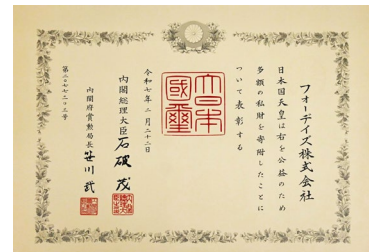 フォーデイズ株式会社
日本国天皇は右を公益のため
多額の私財を寄附したことに
ついて表彰する
大日本
國璽
令和七年二月二十二日
内閣総理大臣 石破茂
内閣府賞勲局長 笹川武